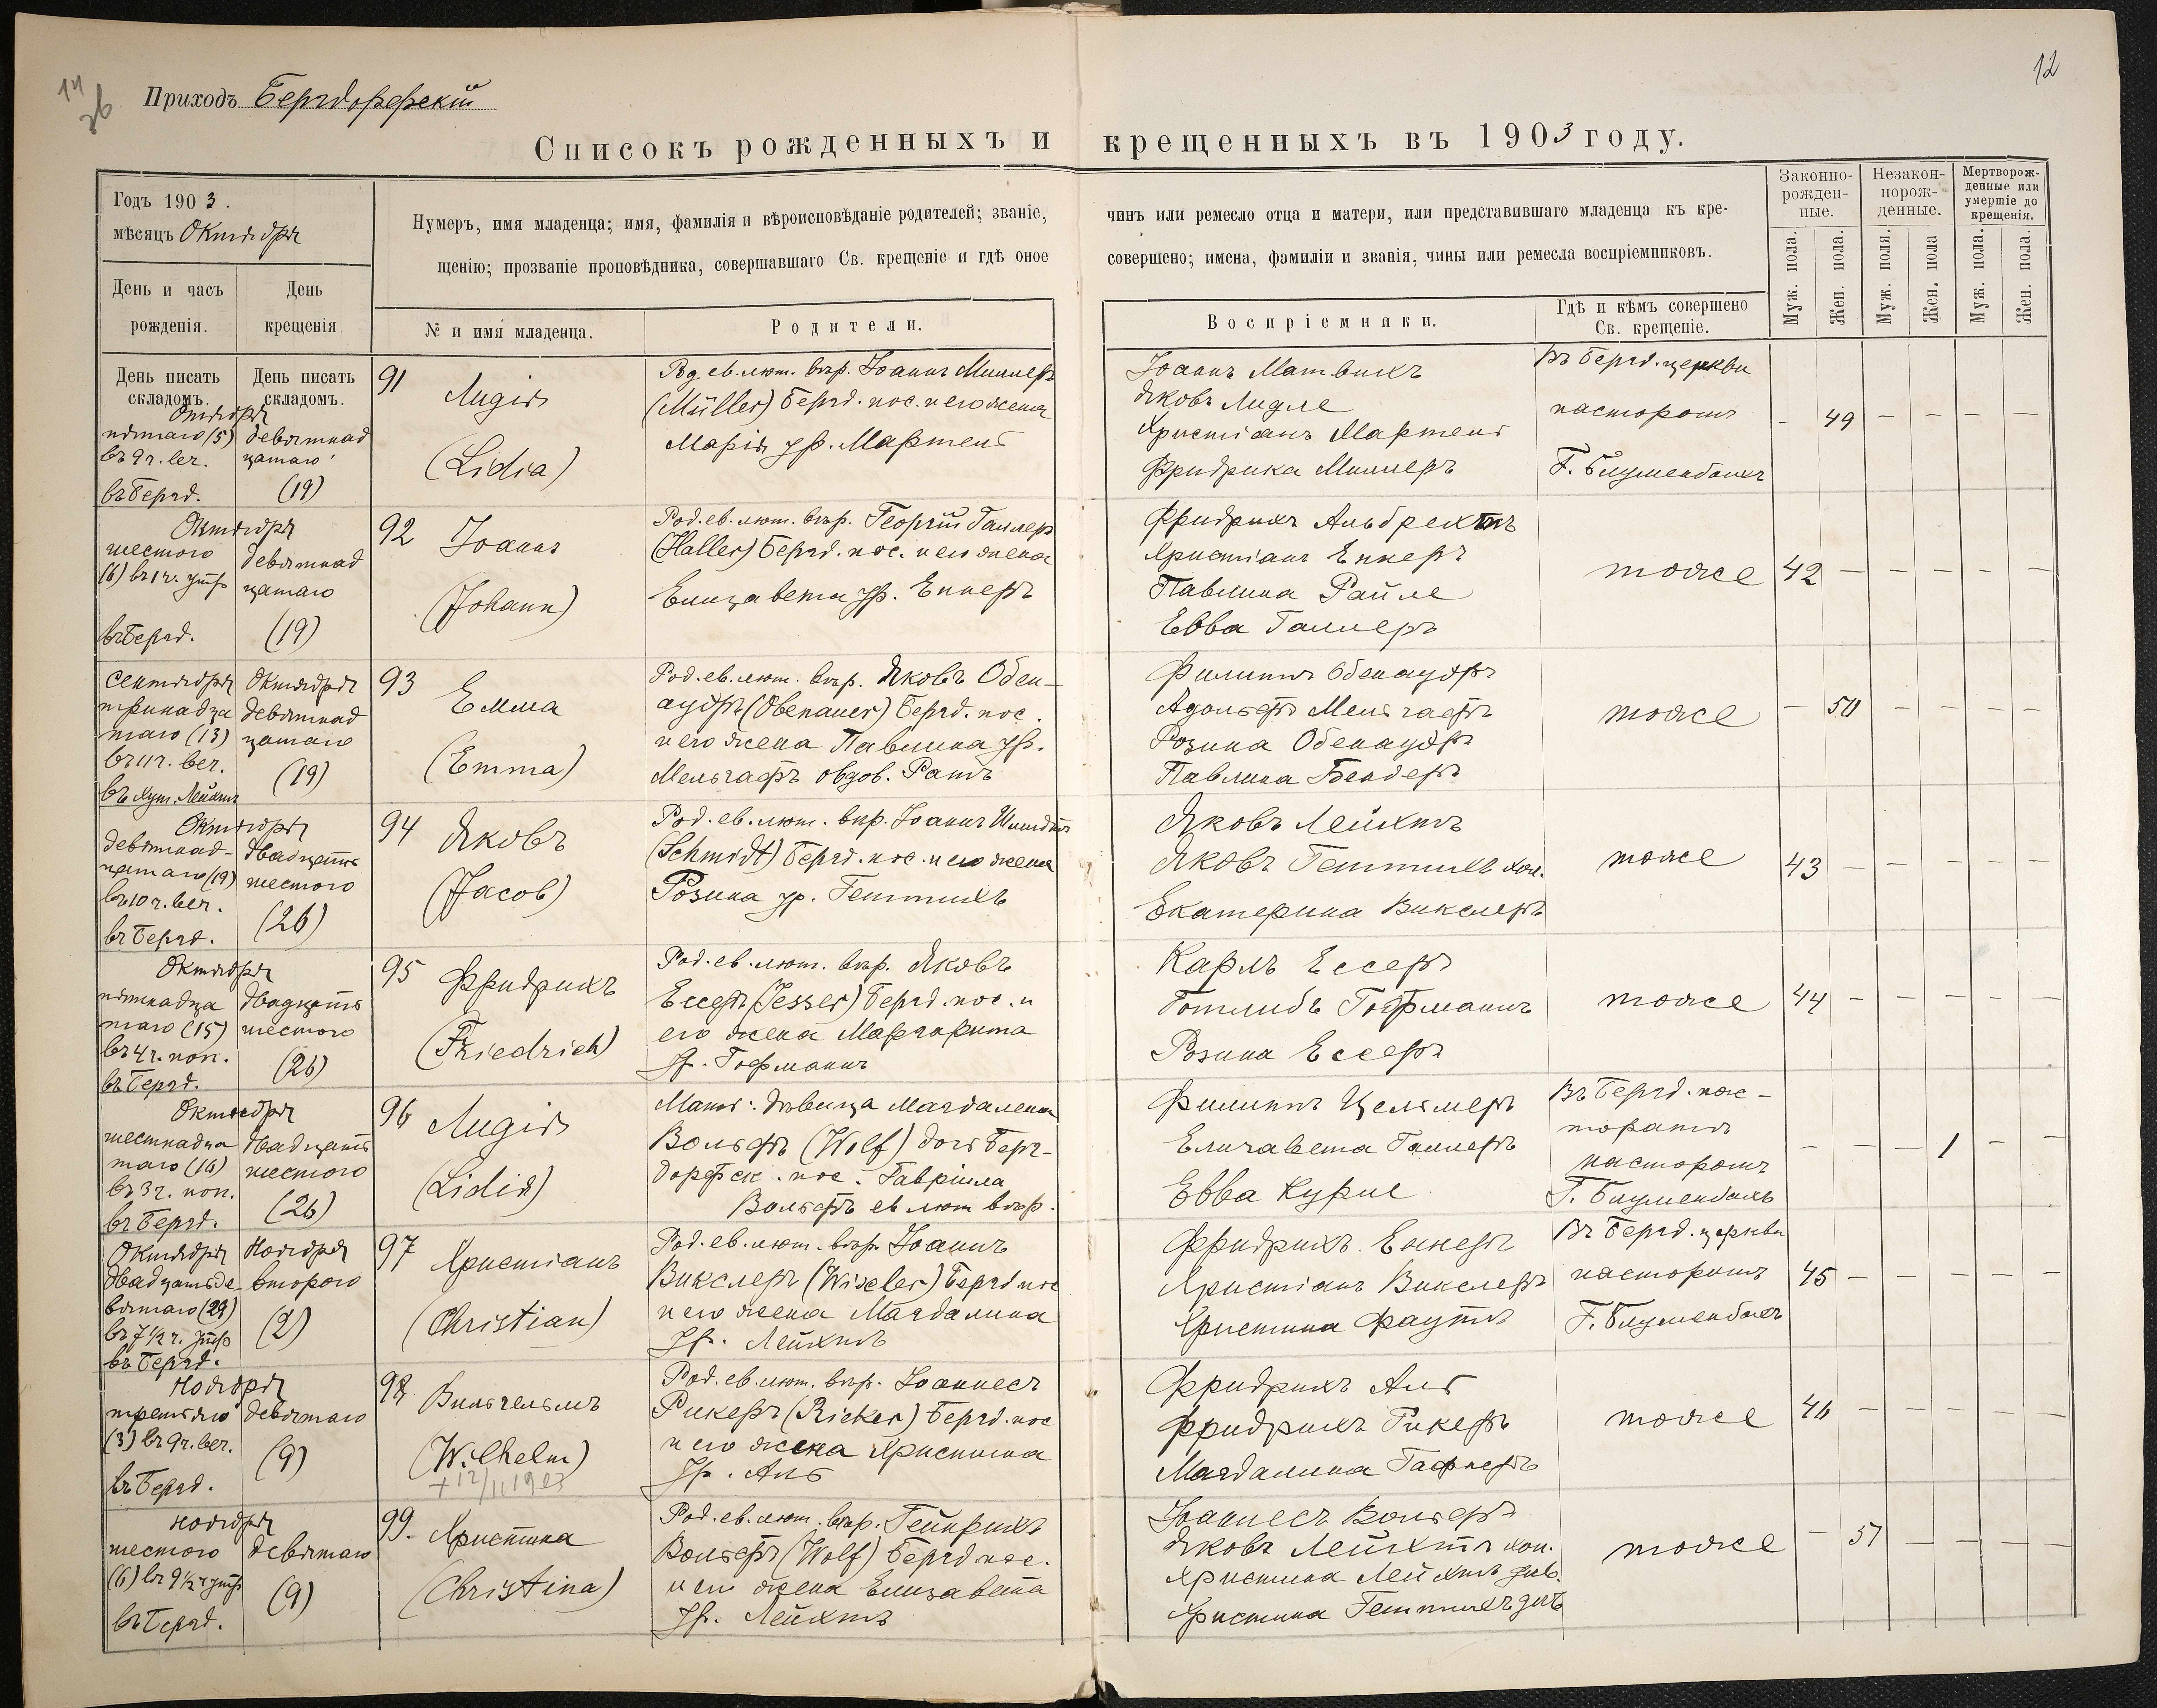 14
Приходъ Бергдорфскій
12
Списокъ рожденныхъ и крещенныхъ въ 1903 году.
Годъ 1903.
мѣсяцъ Октября
День и часъ рожденія.
День крещенія.
Нумеръ, имя младенца; имя, фамилія и вѣроисповѣданіе родителей; званіе, чинъ или ремесло отца и матери, или представившаго младенца къ кре-
щенію; прозваніе проповѣдника, совершавшаго Св. крещеніе и гдѣ оное совершено; имена, фамиліи и званія, чины или ремесла воспріемниковъ.
№ и имя младенца.
Родители.
Воспріемники.
Гдѣ и кѣмъ совершено
Св. крещеніе.
Законно-
рожден-
ные.
Незакон-
норож-
денные.
Мертворож-
денные или
умершіе до
крещенія.
Муж. пола.
Жен. пола.
Муж. пола.
Жен. пола
Муж. пола.
Жен. пола.
День писать
складомъ.
День писать
складомъ.
Октября
пятаго (5)
въ 9 ч. веч.
въ Бергд.
девятнад
цатаго
(19)
91
Лидія
(Lidia)
Род. ев. лют. вѣр. Іоаннъ Миллеръ
(Müller) Бергд. пос. и его жена
Марія ур. Мартенъ
Іоаннъ Матвихъ
Яковъ Лидле
Христіанъ Мартенъ
Фридрика Миллеръ
Въ Бергд. церкви
пасторомъ
Г. Блуменбахъ
- 49 - - - -
Октября
шестого
(6) въ 1 ч. утр
въ Бергд.
девятнад
цатаго
(19)
92
Іоаннъ
(Johann)
Род. ев. лют. вѣр. Георгій Галлеръ
(Haller) Бергд. пос. и его жена
Елизавета ур. Еккеръ
Фридрихъ Альбрехтъ
Христіанъ Еккеръ
Павлина Райле
Евва Галлеръ
тоже
42 - - - - -
Сентября
тринадца
таго (13)
въ 11 ч. веч.
въ хут. Лейхтъ
Октября
девятнад
цатаго
(19)
93
Емма
(Emma)
Род. ев. лют. вѣр. Яковъ Обен-
ауэръ (Obenauer) Бергд. пос.
и его жена Павлина ур.
Мельгафъ овдов. Рангъ
Филиппъ Обенауэръ
Адольфъ Мельгафъ
Розина Обенауэръ
Павлина Бендеръ
тоже
- 50 - - - -
Октября
девятнад-
цатаго (19)
въ 10 ч. веч.
въ Бергд.
двадцать
шестого
(26)
94
Яковъ
(Jacob)
Род. ев. лют. вѣр. Іоаннъ Шмидтъ
(Schmidt) Бергд. пос. и его жена
Розина ур. Геттихъ
Яковъ Лейхтъ
Яковъ Геттихъ хол.
Екатерина Викслеръ
тоже
43 - - - - -
Октября
пятнадца
таго (15)
въ 4 ч. поп.
въ Бергд.
двадцать
шестого
(26)
95
Фридрихъ
(Friedrich)
Род. ев. лют. вѣр. Яковъ
Ессеръ (Jesser) Бергд. пос. и
его жена Маргарита
ур. Гофманнъ
Карлъ Ессеръ
Готлибъ Гофманнъ
Розина Ессеръ
тоже
44 - - - - -
Октября
шестнадца
таго (16)
въ 3 ч. поп.
въ Бергд.
двадцать
шестого
(26)
96
Лидія
(Lidia)
Мать: дѣвица Магдалена
Вольфъ (Wolf) дочь Берг-
дорфск. пос. Гавріила
Вольфъ ев лют вѣр.
Филиппъ Целльмеръ
Елизавета Галлеръ
Евва Курле
Въ Бергд. пас-
торатѣ
пасторомъ
Г. Блуменбахъ
- - - 1 - -
Октября
двадцать де
вятаго (29)
въ 7 1/2 ч. утр
въ Бергд.
Ноября
второго
(2)
97
Христіанъ
(Christian)
Род. ев. лют. вѣр. Іоаннъ
Викслеръ (Wixler) Бергд пос
и его жена Магдалина
ур. Лейхтъ
Фридрихъ Еккеръ
Христіанъ Викслеръ
Христина Фаутъ
Въ Бергд. церкви
пасторомъ
Г. Блуменбахъ
45 - - - - -
Ноября
третьяго
(3) въ 9 ч. веч.
въ Бергд.
девятаго
(9)
98
Вильгельмъ
(Wilhelm)
+ 12/11 1903
Род. ев. лют. вѣр. Іоаннесъ
Рикеръ (Rieker) Бергд. пос
и его жена Христина
ур. Альб
Фридрихъ Альб
Фридрихъ Рикеръ
Магдалина Гафнеръ
тоже
46 - - - - -
Ноября
шестого
(6) въ 9 1/2 ч утр
въ Бергд.
девятаго
(9)
99.
Христина
(Christina)
Род. ев. лют. вѣр. Гейнрихъ
Вольфъ (Wolf) Бергд пос.
и его жена Елизавета
ур. Лейхтъ
Іоаннесъ Вольфъ
Яковъ Лейхтъ хол.
Христина Лейхтъ дѣв.
Христина Геттихъ дѣв
тоже
- 51 - - - -